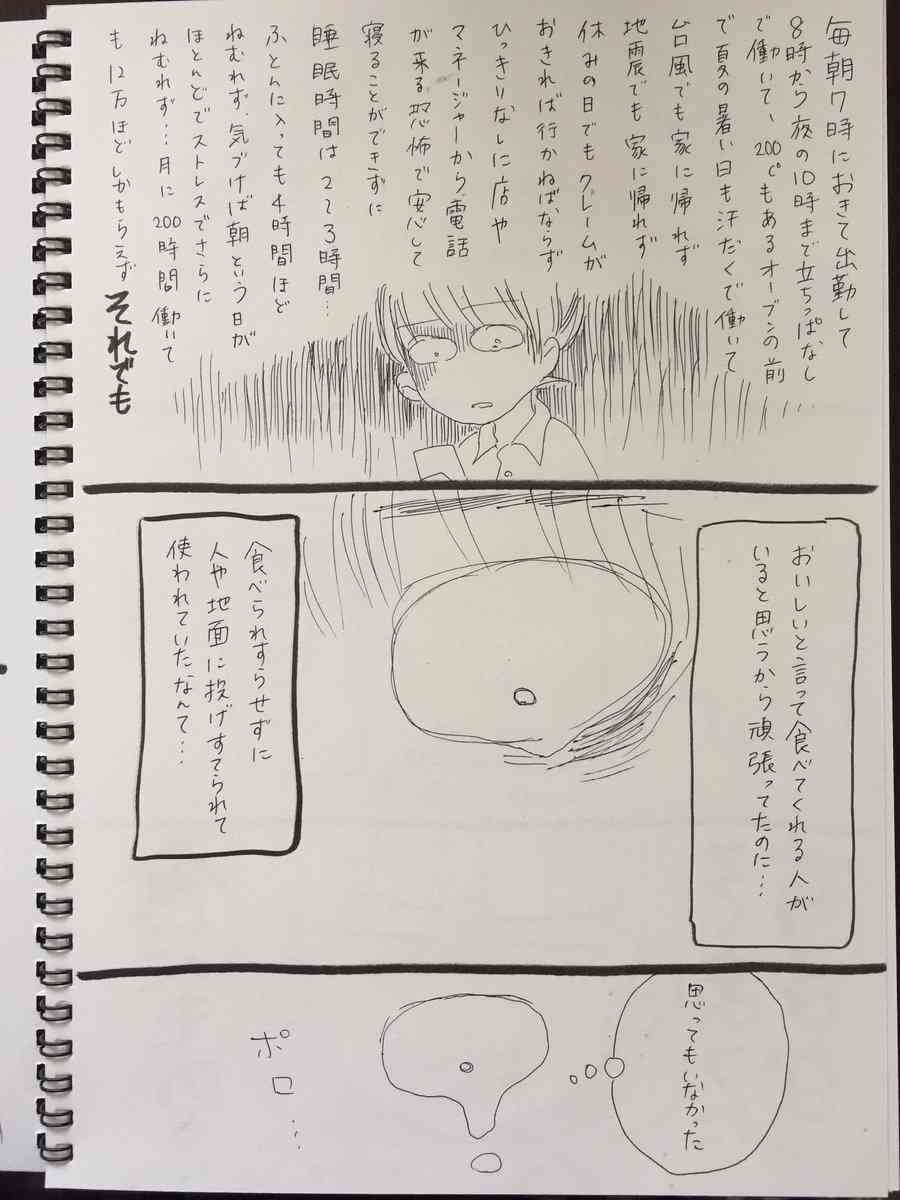 毎朝7時におきて出勤して
8時から夜の10時まで立ちっぱなし
で働いて、200℃もあるオーブンの前
で夏の暑い日も汗だくで働いて
台風でも家に帰れず
地震でも家に帰れず
休みの日でもクレームが
おきれば行かねばならず
ひっきりなしに店や
マネージャーから電話
が来る恐怖で安心して
寝ることができずに
睡眠時間は2て3時間…
ふとんに入っても4時間ほど
ねむれず、気づけば朝という日が
ほとんどでストレスでさらに
ねむれず…月に200時間働いて
も12万ほどしかもらえず
それでも
おいしいと言って食べてくれる人が
いると思うから頑張ってたのに…
食べられすらせずに
人や地面に投げすてられて
使われていたなんて…
思ってもいなかった
ポロ…